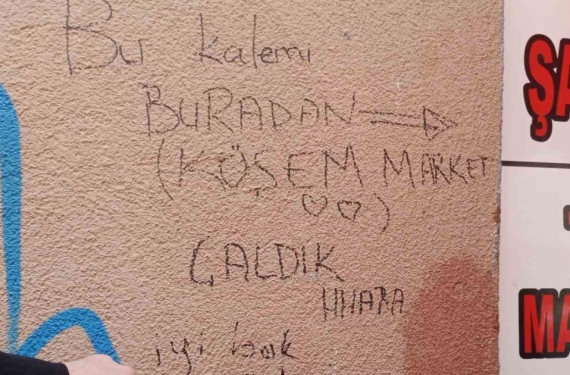 Bu kalemi
BURADAN
(KÖŞEM MARKET
♡♡)
ÇALDIK
HHAHA
iyi bak
ŞA
MA